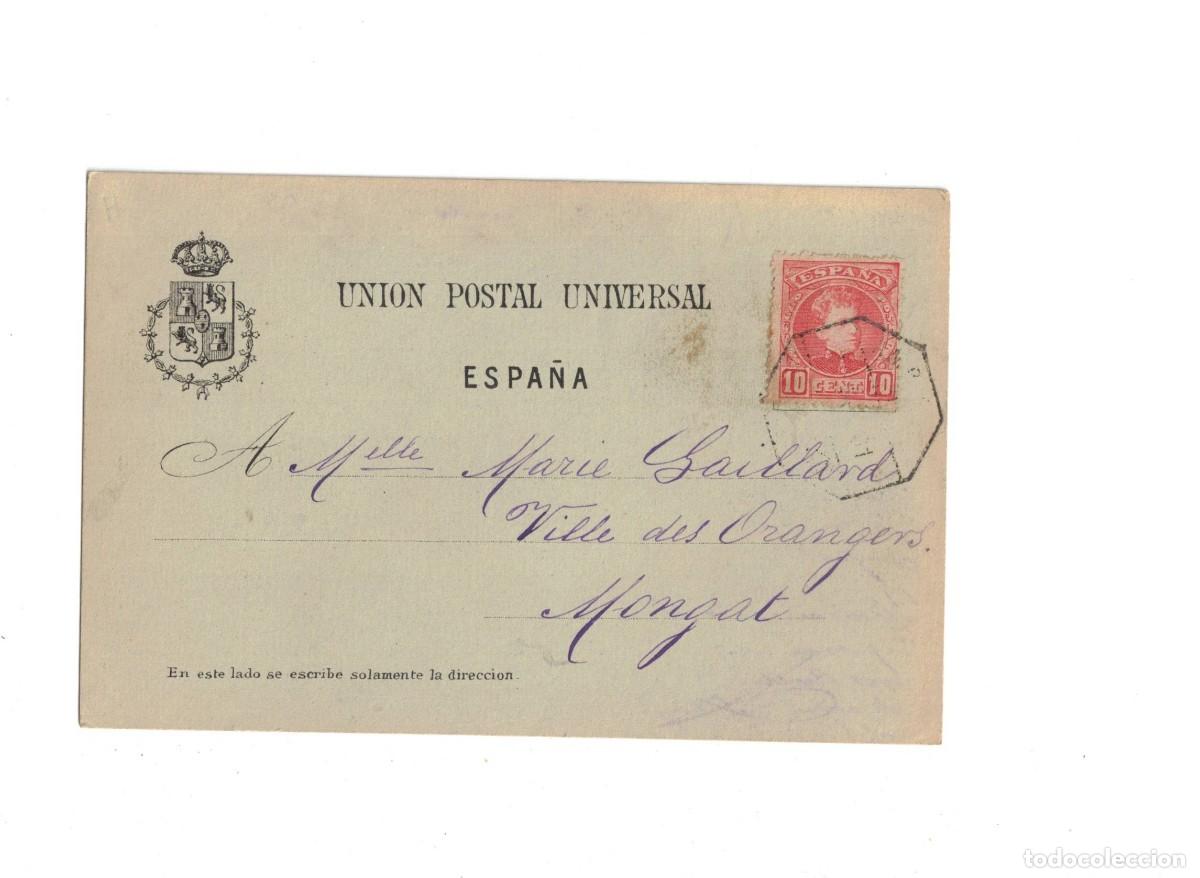 UNION POSTAL UNIVERSAL
ESPAÑA
ESPAÑA
10 CENT. 10
A Melle Marie Gaillard
Ville des Orangers.
Mongat
En este lado se escribe solamente la direccion.
todocoleccion